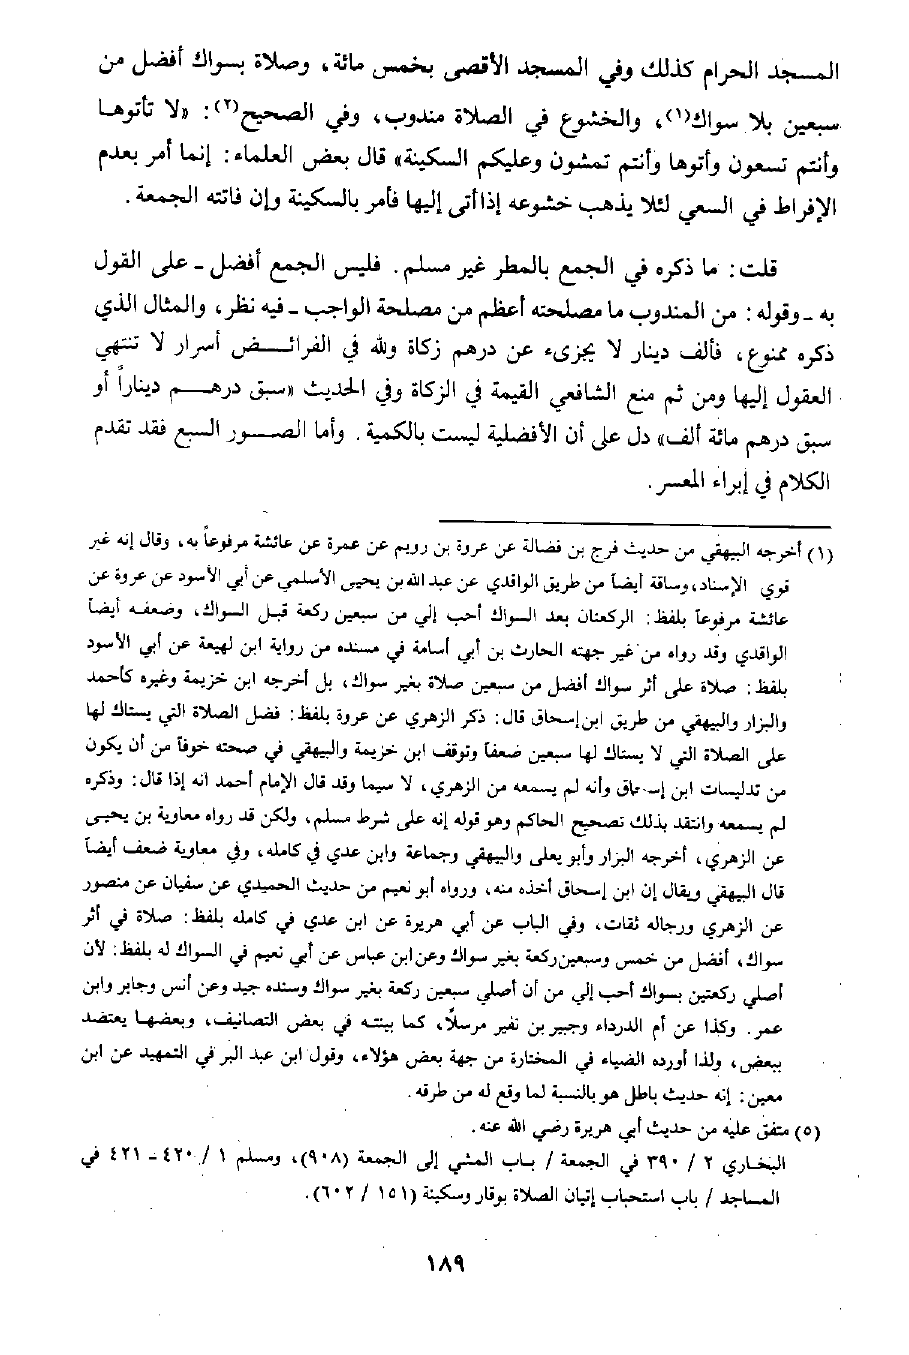 المسجد الحرام كذلك وفي المسجد الأقصى بخمس مائة، وصلاة بسواك أفضل من
سبعين بلا سواك(١)، والخشوع في الصلاة مندوب، وفي الصحيح(٢): «لا تأتوها
وأنتم تسعون وأتوها وأنتم تمشون وعليكم السكينة» قال بعض العلماء: إنما أمر بعدم
الإفراط في السعي لئلا يذهب خشوعه إذا أتى إليها فأمر بالسكينة وإن فاتته الجمعة.
قلت: ما ذكره في الجمع بالمطر غير مسلم. فليس الجمع أفضل ـ على القول
به ـ وقوله: من المندوب ما مصلحته أعظم من مصلحة الواجب ـ فيه نظر، والمثال الذي
ذكره ممنوع، فألف دينار لا يجزىء عن درهم زكاة ولله في الفرائض أسرار لا تنتهي
العقول إليها ومن ثم منع الشافعي القيمة في الزكاة وفي الحديث «سبق درهم ديناراً أو
سبق درهم مائة ألف» دل على أن الأفضلية ليست بالكمية. وأما الصور السبع فقد تقدم
الكلام في إبراء المعسر.
(١) أخرجه البيهقي من حديث فرج بن فضالة عن عروة بن رويم عن عمرة عن عائشة مرفوعاً به، وقال إنه غير
قوي الإسناد، وساقة أيضاً من طريق الواقدي عن عبد الله بن يحيى الأسلمي عن أبي الأسود عن عروة عن
عائشة مرفوعاً بلفظ: الركعتان بعد السواك أحب إلي من سبعين ركعة قبل السواك، وضعفه أيضاً
الواقدي وقد رواه من غير جهته الحارث بن أبي أسامة في مسنده من رواية ابن لهيعة عن أبي الأسود
بلفظ: صلاة على أثر سواك أفضل من سبعين صلاة بغير سواك، بل أخرجه ابن خزيمة وغيره كأحمد
والبزار والبيهقي من طريق ابن إسحاق قال: ذكر الزهري عن عروة بلفظ: فضل الصلاة التي يستاك لها
على الصلاة التي لا يستاك لها سبعين ضعفاً وتوقف ابن خزيمة والبيهقي في صحته خوفاً من أن يكون
من تدليسات ابن إسحاق وأنه لم يسمعه من الزهري، لا سيما وقد قال الإمام أحمد انه إذا قال: وذكره
لم يسمعه وانتقد بذلك تصحيح الحاكم وهو قوله إنه على شرط مسلم، ولكن قد رواه معاوية بن يحيى
عن الزهري، أخرجه البزار وأبو يعلى والبيهقي وجماعة وابن عدي في كامله، وفي معاوية ضعف أيضاً
قال البيهقي ويقال إن ابن إسحاق أخذه منه، ورواه أبو نعيم من حديث الحميدي عن سفيان عن منصور
عن الزهري ورجاله ثقات، وفي الباب عن أبي هريرة عن ابن عدي في كامله بلفظ: صلاة في أثر
سواك، أفضل من خمس وسبعين ركعة بغير سواك وعن ابن عباس عن أبي نعيم في السواك له بلفظ: لأن
أصلي ركعتين بسواك أحب إلي من أن أصلي سبعين ركعة بغير سواك وسنده جيد وعن أنس وجابر وابن
عمر. وكذا عن أم الدرداء وجبير بن نفير مرسلاً، كما بينته في بعض التصانيف، وبعضها يعتضد
ببعض، ولذا أورده الضياء في المختارة من جهة بعض هؤلاء، وقول ابن عبد البر في التمهيد عن ابن
معين: إنه حديث باطل هو بالنسبة لما وقع له من طرقه.
(٥) متفق عليه من حديث أبي هريرة رضي الله عنه.
البخاري ٢ / ٣٩٠ في الجمعة / باب المشي إلى الجمعة (٩٠٨)، ومسلم ١ / ٤٢٠ ـ ٤٢١ في
المساجد / باب استحباب إتيان الصلاة بوقار وسكينة (١٥١ / ٦٠٢).
١٨٩